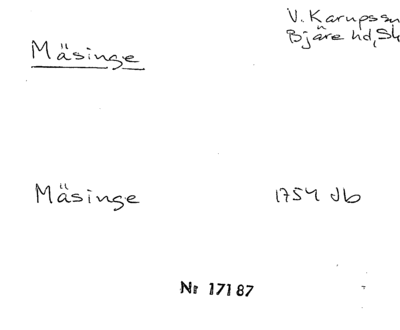 V. Karupssn
Bjäre hd, Sk
Mäsinge
Mäsinge 1754 Jb
Nr 17187